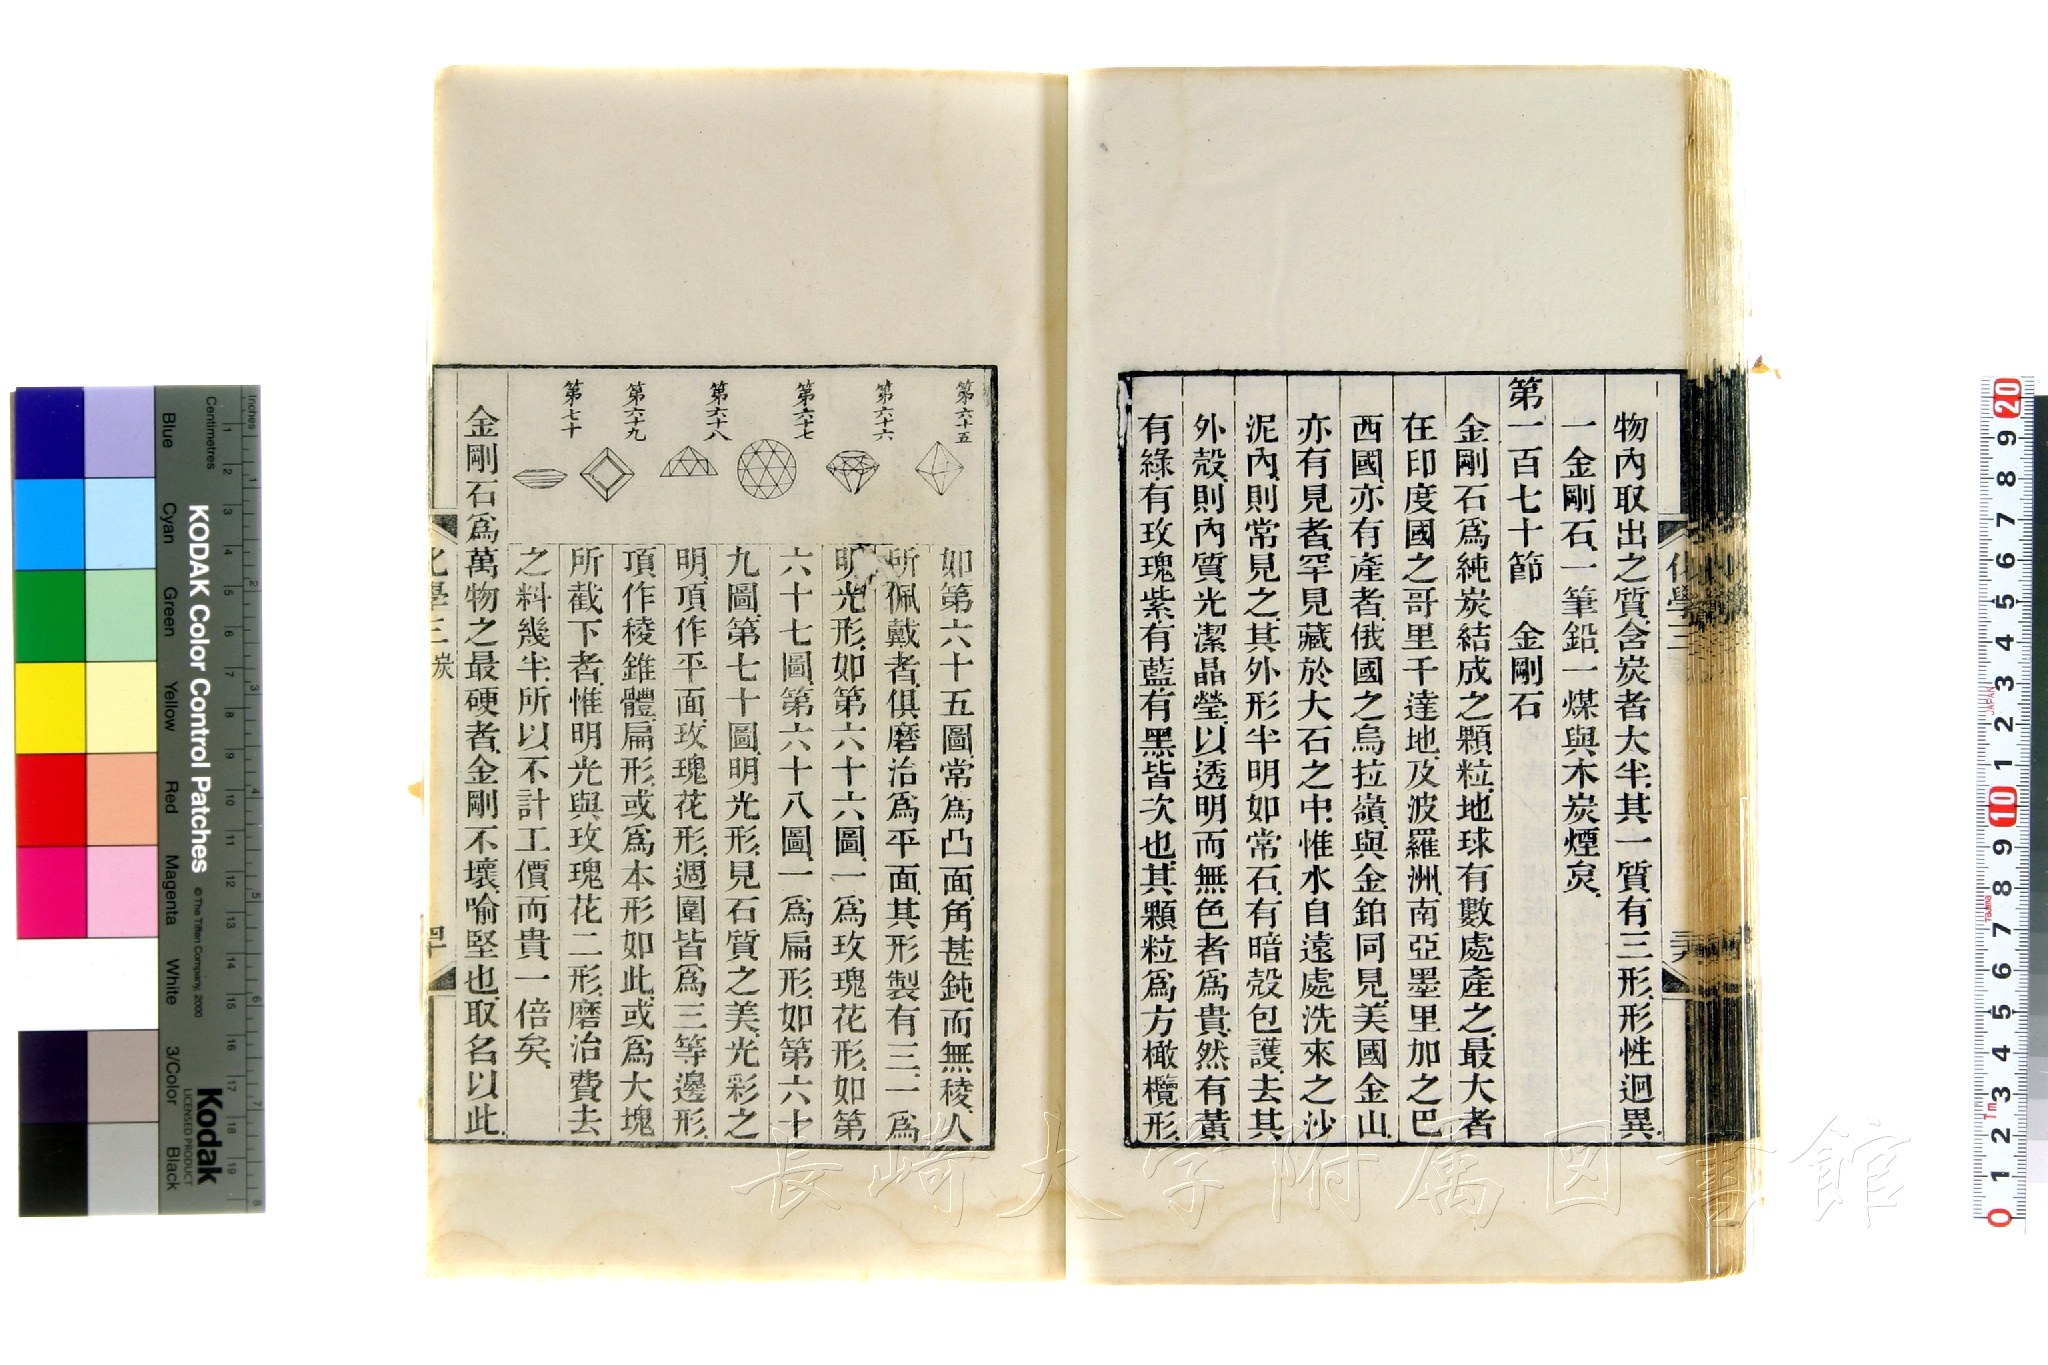 物內取出之質含炭者大半、其一質有三形、形性迥異、
一金剛石、一筆鉛、一煤與木炭煙炱、
第一百七十節　金剛石
金剛石爲純炭結成之顆粒、地球有數處產之、最大者
在印度國之哥里千達地、及波羅洲、南亞墨里加之巴
西國、亦有產者、俄國之烏拉嶺、與金鉑同見、美國金山
亦有見者、罕見藏於大石之中、惟水自遠處洗來之沙
泥內、則常見之、其外形半明如常石、有暗殼包護、去其
外殼、則內質光潔晶瑩、以透明而無色者爲貴、然有黃
有綠、有玫瑰紫有藍有黑皆次也、其顆粒爲方橄欖形、
化學三
第六十五
第六十六
第六十七
第六十八
第六十九
第七十
如第六十五圖、常爲凸面、角甚鈍而無稜、人
所佩戴者、俱磨治爲平面、其形製有三、一爲
明光形、如第六十六圖、一爲玫瑰花形、如第
六十七圖、第六十八圖、一爲扁形、如第六十
九圖、第七十圖、明光形、見石質之美、光彩之
明、頂作平面、玫瑰花形、週圍皆爲三等邊形、
頂作稜錐體、扁形、或爲本形如此、或爲大塊
所截下者、惟明光與玫瑰花二形、磨治費去
之料幾半、所以不計工價、而貴一倍矣、
金剛石爲萬物之最硬者、金剛不壞、喻堅也、取名以此、
化學三 炭
長崎大学附属図書館
KODAK Color Control Patches
© The Tiffen Company, 2000
Kodak
LICENSED PRODUCT
Inches
Centimetres
Blue
Cyan
Green
Yellow
Red
Magenta
White
3/Color
Black
JAPAN
Tajima
1m